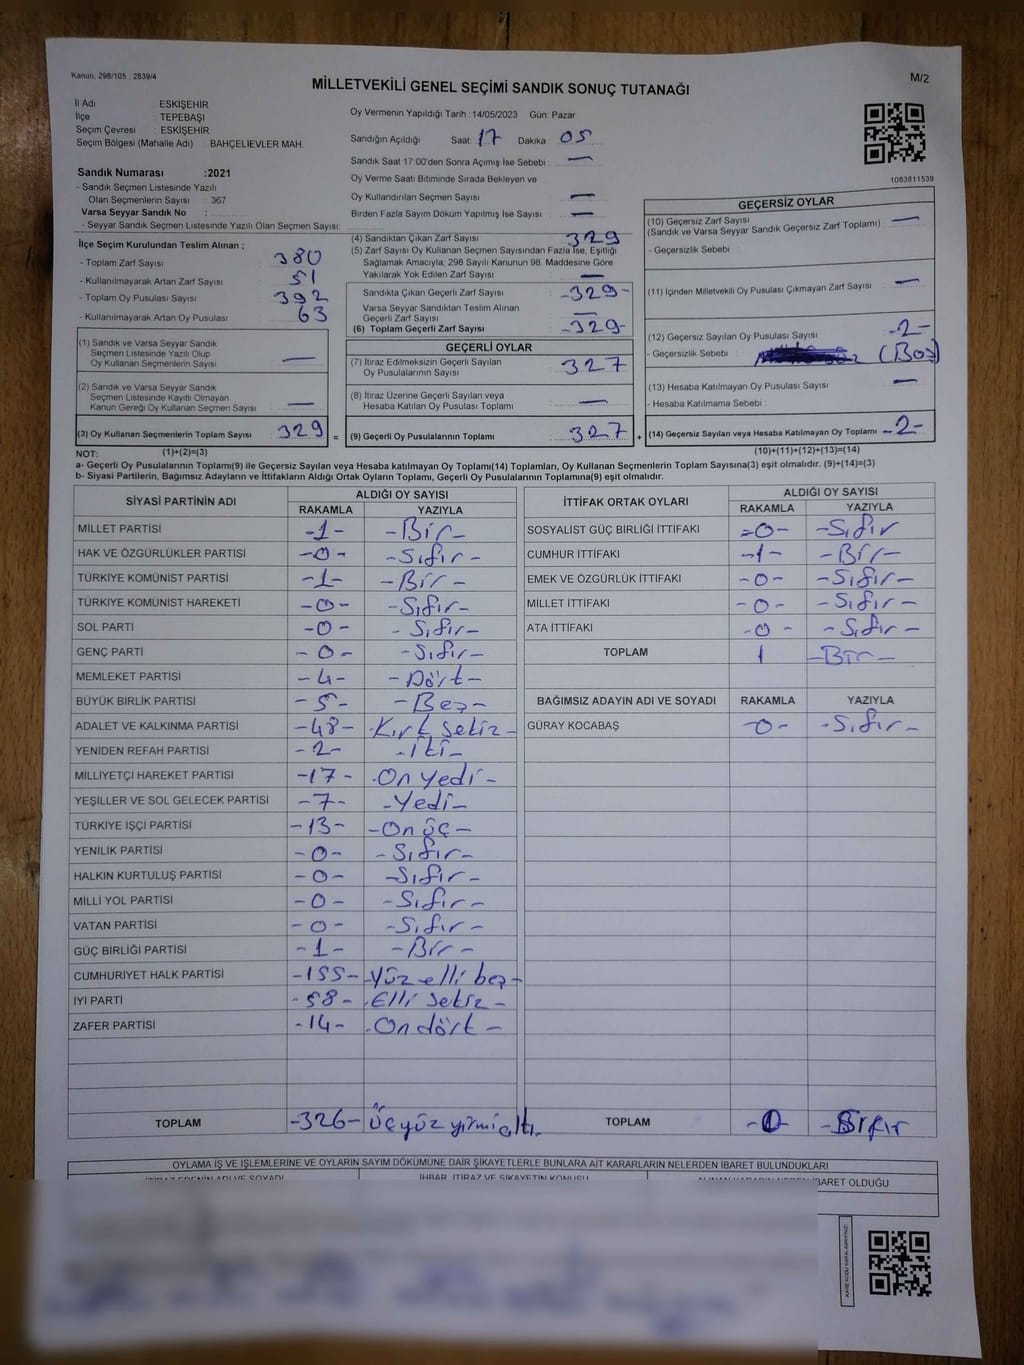 Kanun, 298/105 , 2839/4
M/2
MİLLETVEKİLİ GENEL SEÇİMİ SANDIK SONUÇ TUTANAĞI
İl Adı ESKİŞEHİR
İlçe TEPEBAŞI
Seçim Çevresi : ESKİŞEHİR
Seçim Bölgesi (Mahalle Adı) BAHÇELİEVLER MAH.
Sandık Numarası :2021
- Sandık Seçmen Listesinde Yazılı
Olan Seçmenlerin Sayısı : 367
Varsa Seyyar Sandık No :
- Seyyar Sandık Seçmen Listesinde Yazılı Olan Seçmen Sayısı :
Oy Vermenin Yapıldığı Tarih : 14/05/2023 Gün: Pazar
Sandığın Açıldığı Saat: 17 Dakika : 05
Sandık Saat 17:00'den Sonra Açmış İse Sebebi : —
Oy Verme Saati Bitiminde Sırada Bekleyen ve
Oy Kullandırılan Seçmen Sayısı : —
Birden Fazla Sayım Döküm Yapılmış İse Sayısı : —
1083811539
İlçe Seçim Kurulundan Teslim Alınan ;
- Toplam Zarf Sayısı : 380
- Kullanılmayarak Artan Zarf Sayısı : 51
- Toplam Oy Pusulası Sayısı : 392
- Kullanılmayarak Artan Oy Pusulası : 63
(1) Sandık ve Varsa Seyyar Sandık
Seçmen Listesinde Yazılı Olup
Oy Kullanan Seçmenlerin Sayısı : —
(2) Sandık ve Varsa Seyyar Sandık
Seçmen Listesinde Kayıtlı Olmayan
Kanun Gereği Oy Kullanan Seçmen Sayısı : —
(3) Oy Kullanan Seçmenlerin Toplam Sayısı : 329 =
(4) Sandıktan Çıkan Zarf Sayısı : 329
(5) Zarf Sayısı Oy Kullanan Seçmen Sayısından Fazla İse, Eşitliği
Sağlamak Amacıyla; 298 Sayılı Kanunun 98. Maddesine Göre
Yakılarak Yok Edilen Zarf Sayısı : —
Sandıkta Çıkan Geçerli Zarf Sayısı : -329-
Varsa Seyyar Sandıktan Teslim Alınan
Geçerli Zarf Sayısı : —
(6) Toplam Geçerli Zarf Sayısı : -329-
GEÇERLİ OYLAR
(7) İtiraz Edilmeksizin Geçerli Sayılan
Oy Pusulalarının Sayısı : 327
(8) İtiraz Üzerine Geçerli Sayılan veya
Hesaba Katılan Oy Pusulası Toplamı : —
(9) Geçerli Oy Pusulalarının Toplamı : 327 +
GEÇERSİZ OYLAR
(10) Geçersiz Zarf Sayısı : —
(Sandık ve Varsa Seyyar Sandık Geçersiz Zarf Toplamı)
- Geçersizlik Sebebi :
(11) İçinden Milletvekili Oy Pusulası Çıkmayan Zarf Sayısı : —
(12) Geçersiz Sayılan Oy Pusulası Sayısı : -2-
- Geçersizlik Sebebi : (Boş)
(13) Hesaba Katılmayan Oy Pusulası Sayısı : —
- Hesaba Katılmama Sebebi :
(14) Geçersiz Sayılan veya Hesaba Katılmayan Oy Toplamı : -2-
NOT: (1)+(2)=(3) (10)+(11)+(12)+(13)=(14)
a- Geçerli Oy Pusulalarının Toplamı(9) ile Geçersiz Sayılan veya Hesaba katılmayan Oy Toplamı(14) Toplamları, Oy Kullanan Seçmenlerin Toplam Sayısına(3) eşit olmalıdır. (9)+(14)=(3)
b- Siyasi Partilerin, Bağımsız Adayların ve İttifakların Aldığı Ortak Oyların Toplamı, Geçerli Oy Pusulalarının Toplamına(9) eşit olmalıdır.
SİYASİ PARTİNİN ADI ALDIĞI OY SAYISI
RAKAMLA YAZIYLA
MİLLET PARTİSİ -1- -Bir-
HAK VE ÖZGÜRLÜKLER PARTİSİ -0- -Sıfır-
TÜRKİYE KOMÜNİST PARTİSİ -1- -Bir-
TÜRKİYE KOMÜNİST HAREKETİ -0- -Sıfır-
SOL PARTİ -0- -Sıfır-
GENÇ PARTİ -0- -Sıfır-
MEMLEKET PARTİSİ -4- -Dört-
BÜYÜK BİRLİK PARTİSİ -5- -Beş-
ADALET VE KALKINMA PARTİSİ -48- -Kırk sekiz-
YENİDEN REFAH PARTİSİ -2- -İki-
MİLLİYETÇİ HAREKET PARTİSİ -17- -On yedi-
YEŞİLLER VE SOL GELECEK PARTİSİ -7- -Yedi-
TÜRKİYE İŞÇİ PARTİSİ -13- -On üç-
YENİLİK PARTİSİ -0- -Sıfır-
HALKIN KURTULUŞ PARTİSİ -0- -Sıfır-
MİLLİ YOL PARTİSİ -0- -Sıfır-
VATAN PARTİSİ -0- -Sıfır-
GÜÇ BİRLİĞİ PARTİSİ -1- -Bir-
CUMHURİYET HALK PARTİSİ -155- -Yüz elli beş-
İYİ PARTİ -58- -Elli sekiz-
ZAFER PARTİSİ -14- -On dört-
TOPLAM -326- üçyüz yirmi altı-
İTTİFAK ORTAK OYLARI ALDIĞI OY SAYISI
RAKAMLA YAZIYLA
SOSYALİST GÜÇ BİRLİĞİ İTTİFAKI -0- -Sıfır
CUMHUR İTTİFAKI -1- -Bir-
EMEK VE ÖZGÜRLÜK İTTİFAKI -0- -Sıfır-
MİLLET İTTİFAKI -0- -Sıfır-
ATA İTTİFAKI -0- -Sıfır-
TOPLAM 1 -Bir-
BAĞIMSIZ ADAYIN ADI VE SOYADI RAKAMLA YAZIYLA
GÜRAY KOCABAŞ -0- -Sıfır-
TOPLAM -0- -Sıfır
OYLAMA İŞ VE İŞLEMLERİNE VE OYLARIN SAYIM DÖKÜMÜNE DAİR ŞİKAYETLERLE BUNLARA AİT KARARLARIN NELERDEN İBARET BULUNDUKLARI
İTİRAZ EDENİN ADI VE SOYADI İHBAR, İTİRAZ VE ŞİKAYETİN KONUSU ALINAN KARARIN NEDEN İBARET OLDUĞU